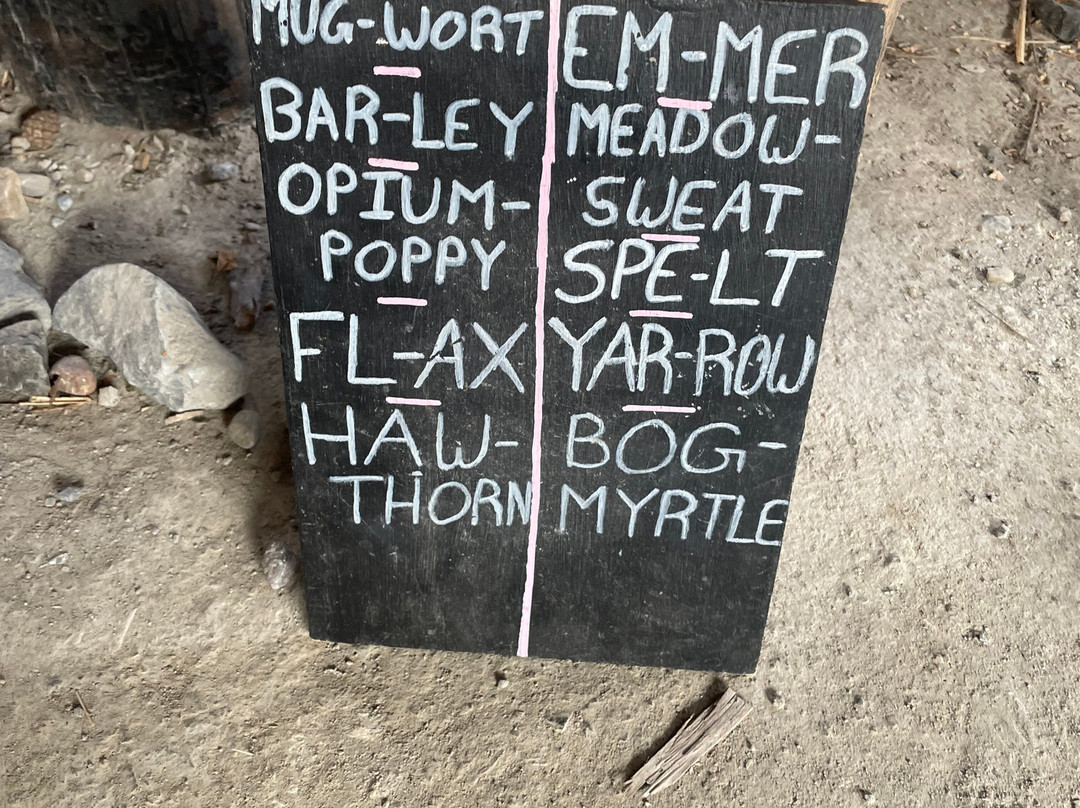 MUG-WORT
BAR-LEY
OPIUM-
POPPY
FL-AX
HAW-
THORN
EM-MER
MEADOW-
SWEAT
SPE-LT
YAR-ROW
BOG-
MYRTLE